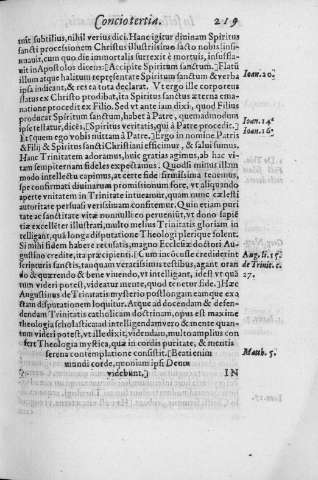 Concio tertia. 219
init subtilius, nihil verius dici. Hanc igitur diuinam Spiritus
sancti processionem Christus illustrissimo facto nobis insi-
nuauit, cum quo die immortalis surrexit è mortuis, insuffla-
uit in Apostolos dicens: [Accipite Spiritum sanctum.] Flatū
illum atque halitum repræsentate Spiritum sanctum & verba
ipsa indicant, & res ea tota declarat. Vt ergo ille corporeus
flatus ex Christo prodibat, ita Spiritus sanctus æterna ema-
natione procedit ex Filio. Sed vt ante iam dixi, quod Filius
producat Spiritum sanctum, habet à Patre, quemadmodum
ipse testatur, dicēs, [Spiritus veritatis, qui à Patre procedit.]
Et [quem ego vobis mittam à Patre.] Ergo in nomine Patris
& Filij & Spiritus sancti Christiani efficimur, & salui sumus.
Hanc Trinitatem adoramus, huic gratias agimus, ab hac vi-
tam sempiternam fideles expectamus. Quod si minus illum
modo intellectu capimus, at certe fide firmissima teneamus,
spe confirmati diuinarum promissionum fore, vt aliquando
aperte vnitatem in Trinitate intueamur, quam nunc cælesti
autoritate persuasi verissimam confitemur. Quin etiam puri
tate ac sanctitate vitæ nonnulli eo perueníut, vt dono sapiē
tiæ excellēter illustrati, multo melius Trinitatis gloriam in
telligant, quā longa disputatione Theologi plerique solent.
Si mihi fidem habere recusatis, magno Ecclesiæ doctori Au-
gustino credite, ita præcipienti. [Cum inconcusse crediderint
scripturis sanctis, tanquam veracissimis testibus, agant oran
do & quærendo & bene viuendo, vt intelligant, idest vt quā
tum videri potest, videatur mente, quod tenetur fide.] Hæc
Augustinus de Trinitatis mysterio postlongam eamque exa
ctam disputationem loquitur. Atque ad docendam & defen-
dendam Trinitatis catholicam doctrinam, opus est maxime
Theologia scholastica: ad intelligendam vero & mente quan-
tum videri potest, vt ille dixit, videndam, multo amplius con
fert Theologia mystica, quæ in cordis puritate, & mentis
serena contemplatione consistit. [Beati enim
mundi corde, quoniam ipsi Deum
videbunt.] IN
Ioan. 20.
Ioan. 14.
Ioan. 16.
Aug. li. 15.
de Trinit. c.
27.
Matth. 5.